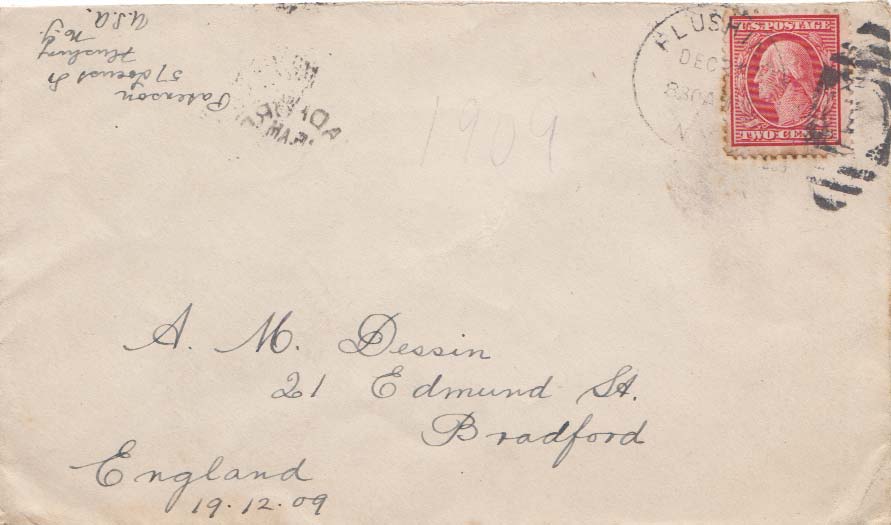 Paterson
57 Locust St
Flushing
N.Y.
U.S.A.
1909
FLUSHI
DEC
830A
N
U.S. POSTAGE
TWO CENTS
A. M. Dessin
21 Edmund St.
Bradford
England
19.12.09